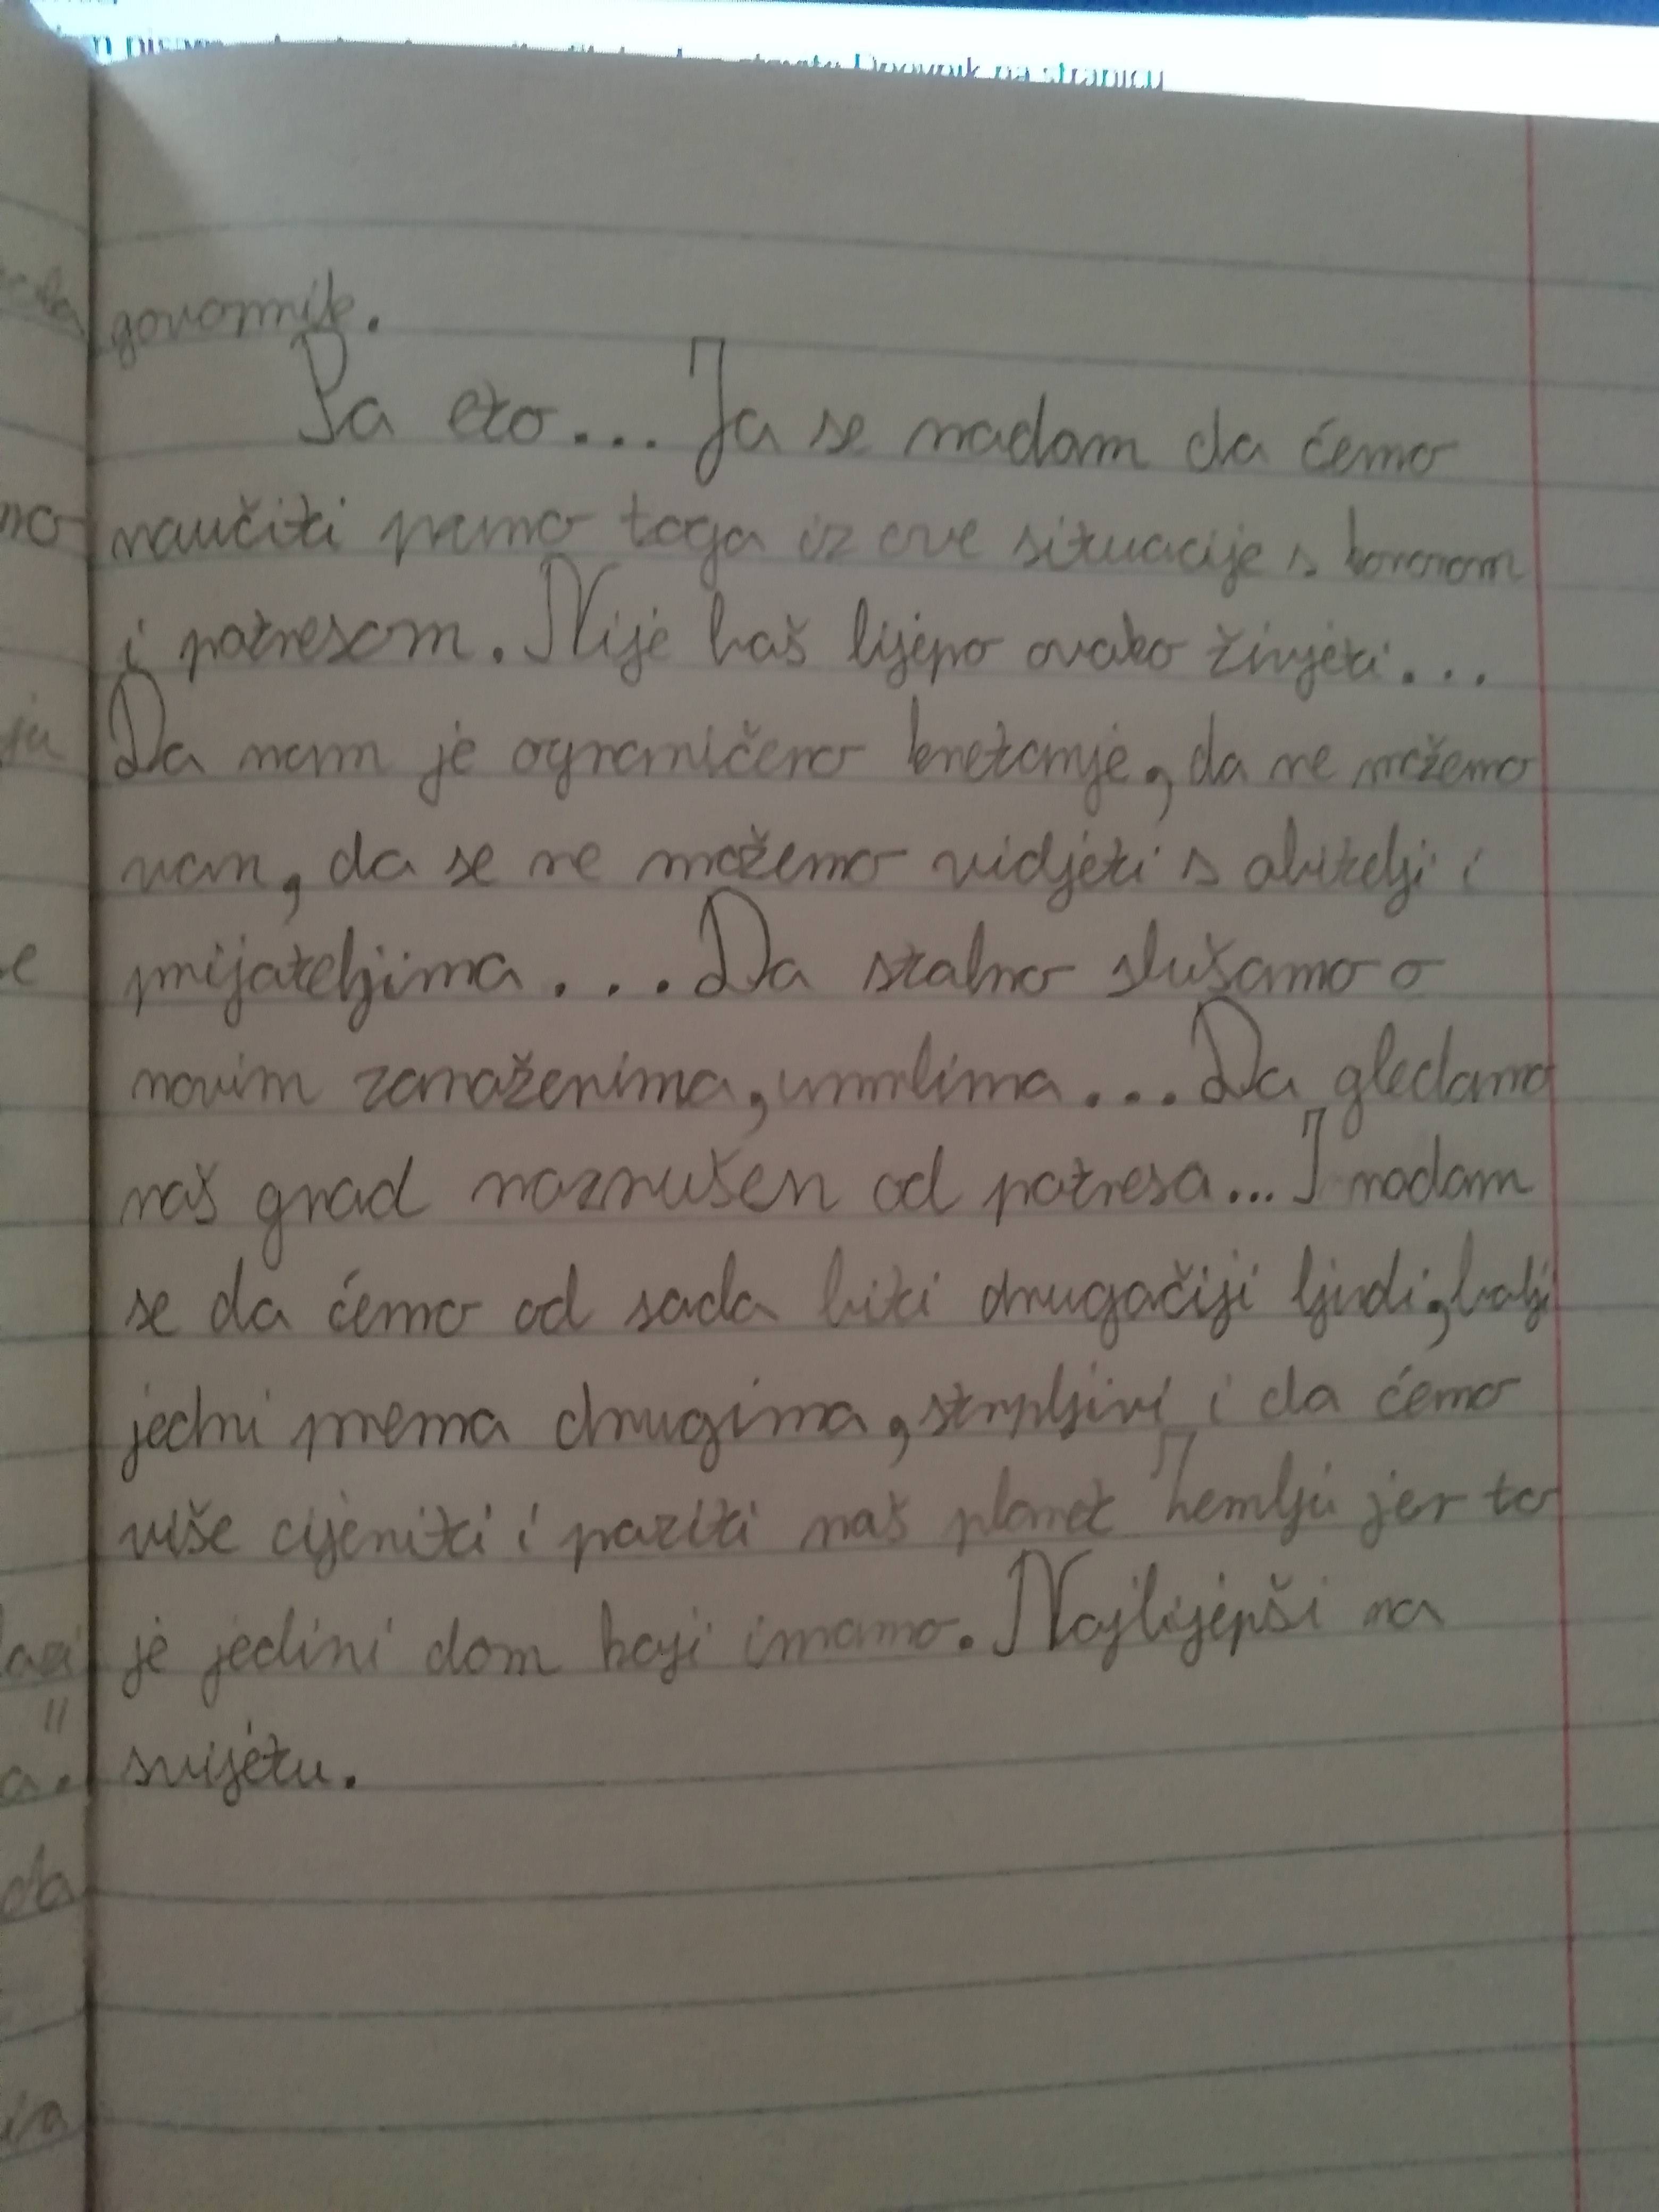 govornik.
Pa eto... Ja se nadam da ćemo
naučiti puno toga iz ove situacije s koronom
i potresom. Nije baš lijepo ovako živjeti...
Da nam je ograničeno kretanje, da ne možemo
van, da se ne možemo vidjeti s obitelji i
prijateljima... Da stalno slušamo o
novim zaraženima, umrlima... Da gledamo
naš grad razrušen od potresa... I nadam
se da ćemo od sada biti drugačiji ljudi, bolji
jedni prema drugima, strpljivi i da ćemo
više cijeniti i paziti naš planet Zemlju jer to
je jedini dom koji imamo. Najljepši na
svijetu.